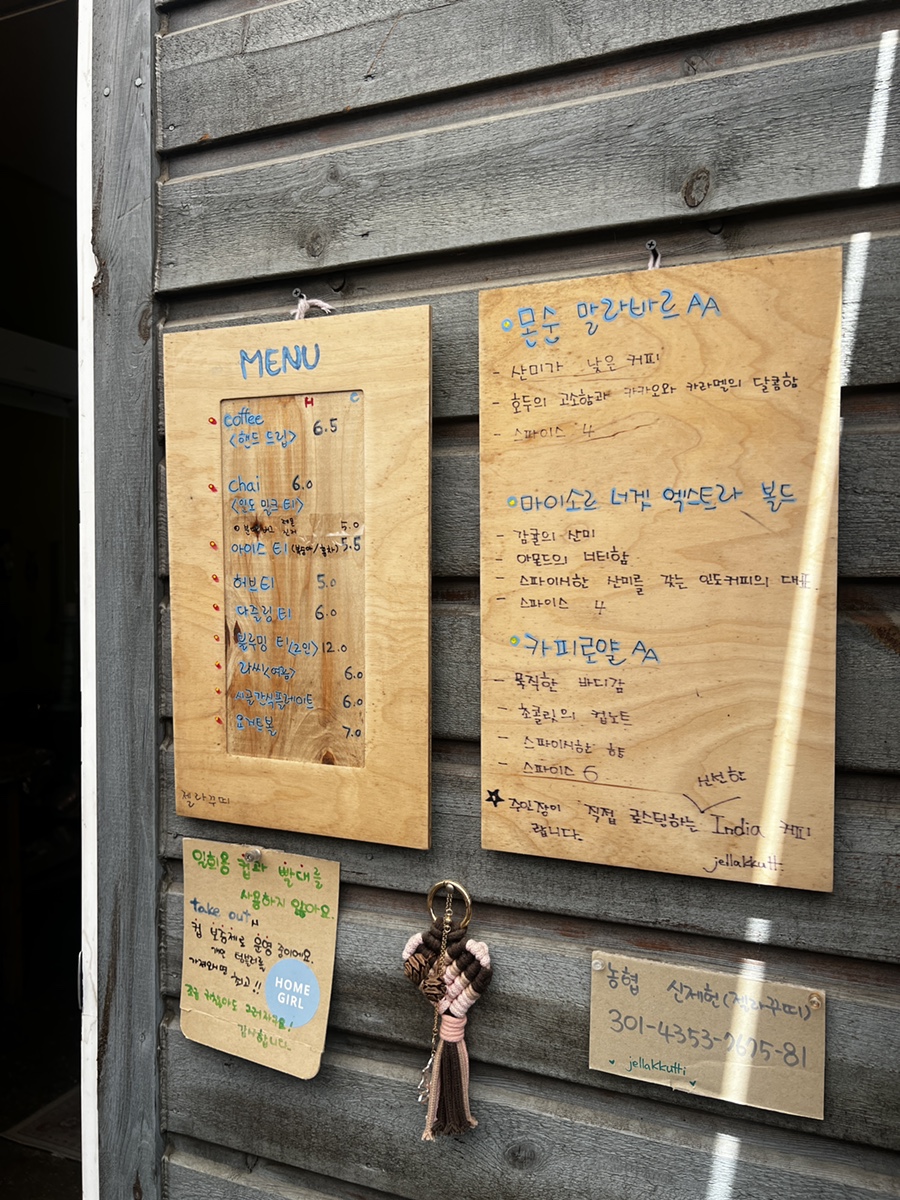 MENU
H C
coffee
<핸드 드립> 6.5
chai 6.0
<인도 밀크 티>
5.0
아이스 티 (복숭아/홍차) 5.5
허브티 5.0
다즐링 티 6.0
블루밍 티(2인) 12.0
라씨
6.0
시골간식플레이트 6.0
요거트볼
7.0
젤라꾸띠
몬순 말라바르 AA
- 산미가 낮은 커피
- 호두의 고소함과 카카오와 카라멜의 달콤함
- 스파이스 4
마이소르 너겟 엑스트라 볼드
- 감귤의 산미
- 아몬드의 너티함
- 스파이시한 산미를 갖는 인도커피의 대표
- 스파이스 4
카피로얄 AA
- 묵직한 바디감
- 초콜릿의 컵노트
- 스파이시한 향
- 스파이스 6
신선한
주인장이 직접 로스팅하는 India 커피
랍니다
jellakkutti
일회용 컵과 빨대를
사용하지 않아요.
take out
컵 보증제로 운영 중이에요.
개인 텀블러를
가져오면 최고!!
HOME
GIRL
감사합니다
농협 신재헌(젤라꾸띠)
301-4353-7675-81
jellakkutti